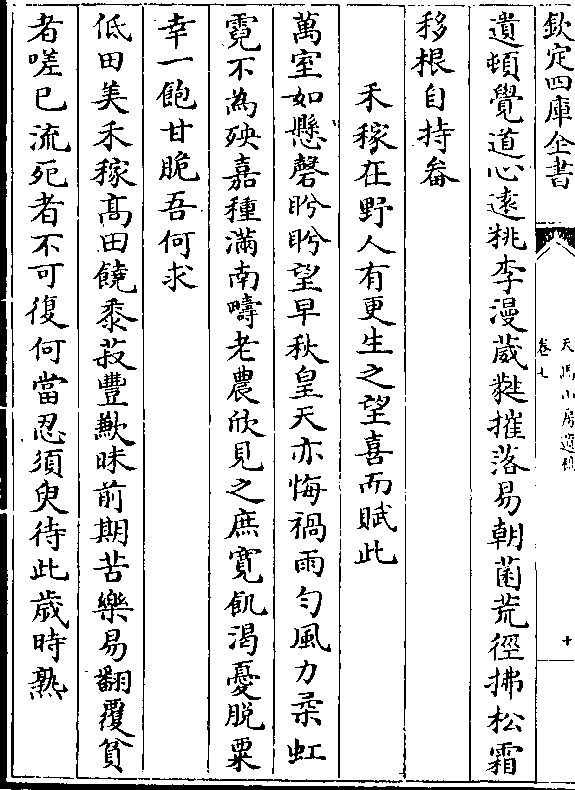 欽定四庫全書
天馬山房遺稿
卷七
十
遺頓覺道心逺桃李漫葳蕤摧落易朝菌荒徑拂松霜
移根自持畚
禾稼在野人有更生之望喜而賦此
萬室如懸磬盻盻望早秋皇天亦悔禍雨勻風力柔虹
霓不為殃嘉種滿南疇老農欣見之庶寛飢渴憂脱粟
幸一飽甘脆吾何求
低田美禾稼髙田饒黍菽豐歉昧前期苦樂易翻覆貧
者嗟已流死者不可復何當忍須臾待此歲時熟